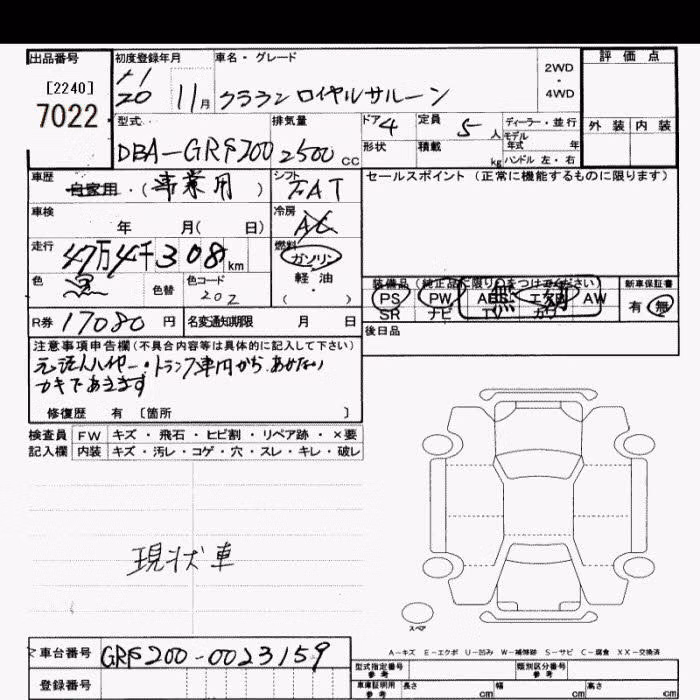 出品番号
[2240]
7022
初度登録年月
20 11月
車名・グレード
クラウンロイヤルサルーン
2WD
・
4WD
評価点
外装 内装
型式
DBA-GRS200
排気量
2500cc
ドア 4
形状
定員 5人
積載 kg
ディーラー・並行
モデル年式 年
ハンドル 左・右
車歴
自家用・(事業用)
シフト
FAT
セールスポイント(正常に機能するものに限ります)
車検
年 月( 日)
冷房
AC
走行
47万4千308km
燃料
ガソリン
軽・油
( )
色
黒
色替
色コード
202
装備品(純正品に限り○をつけてください)
PS PW ABS エアB AW
SR ナビ TV カワ
新車保証書
有・無
R券 17080円
名変通知期限 月 日
後日品
注意事項申告欄(不具合内容等は具体的に記入して下さい)
元法人ハイヤー・トランク車内から、あかない
カギであきます
修復歴 有 〔箇所 〕
検査員 FW キズ・飛石・ヒビ割・リペア跡・×要
記入欄 内装 キズ・汚レ・コゲ・穴・スレ・キレ・破レ
現状車
スペア
A-キズ E-エクボ U-凹み W-補修跡 S-サビ C-腐食 XX-交換済
車台番号 GRS200-0023159
登録番号
型式指定番号 参考
類別区分番号 参考
車庫証明用 参考
長さ cm 幅 cm 高さ cm